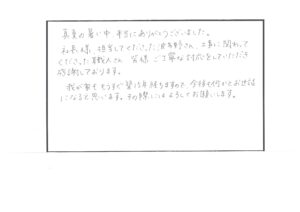 真夏の暑い中、本当にありがとうございました。
社長様、担当してくださった波多野さん、工事に関わって
くださった職人さん 皆様 ご丁寧な対応をしていただき
感謝しております。
我が家ももうすぐ築15年経ちますので、今後も何かとお世話
になると思います。その際にはよろしくお願いします。